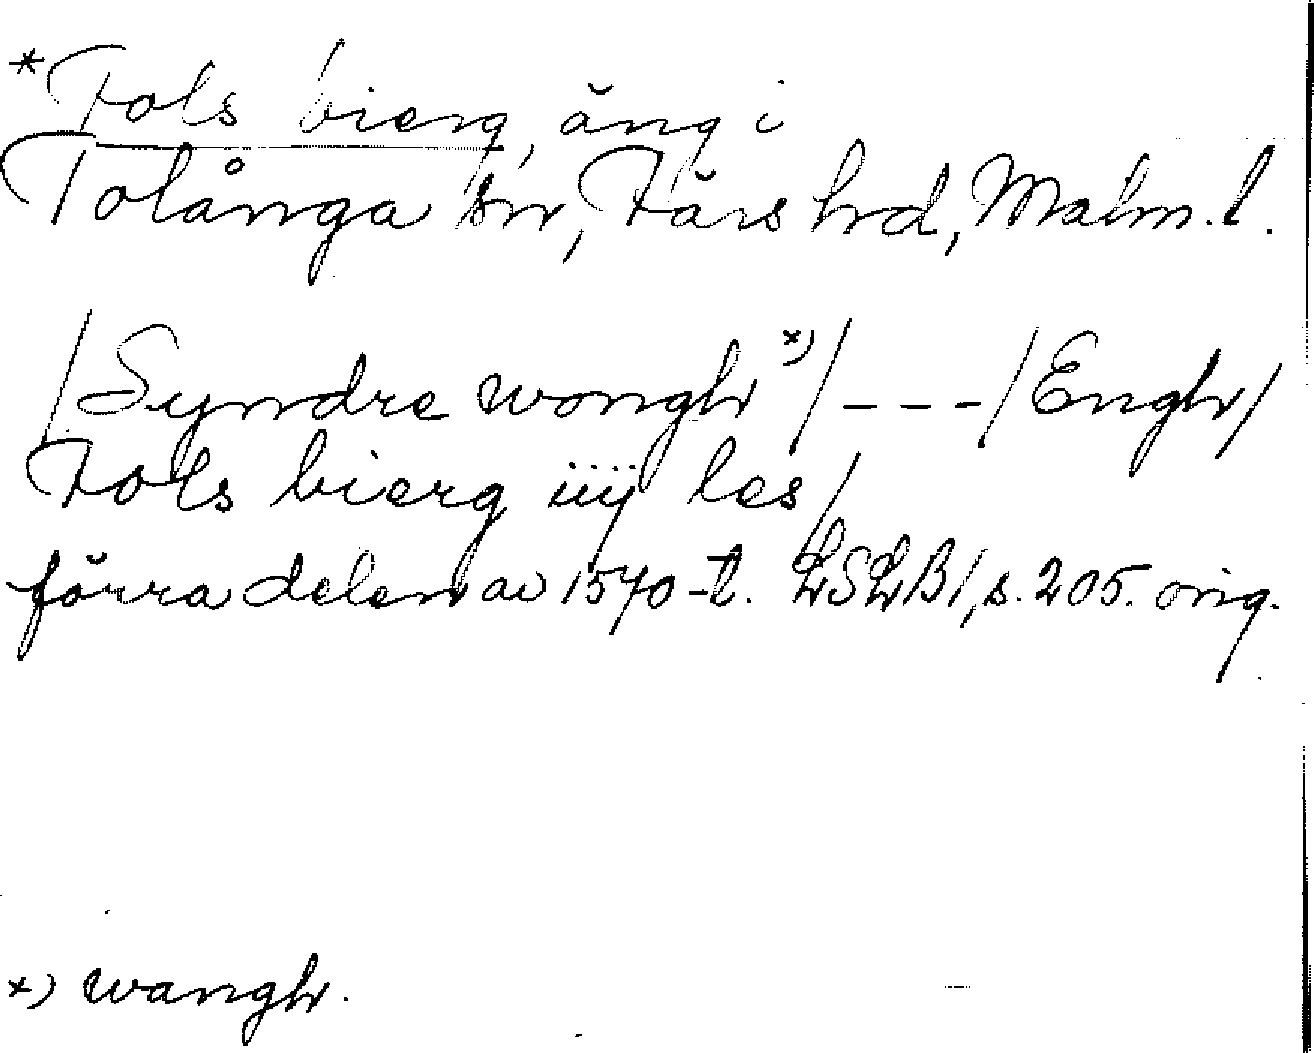 *Fols bierg, äng i
Tolånga sn, Färs hrd, Malm. l.
/Syndre wongh *)/ - - - /Engh/
Fols bierg iiij les/
förra delen av 1570-t. LSLB1, s. 205. orig.
*) wangh.